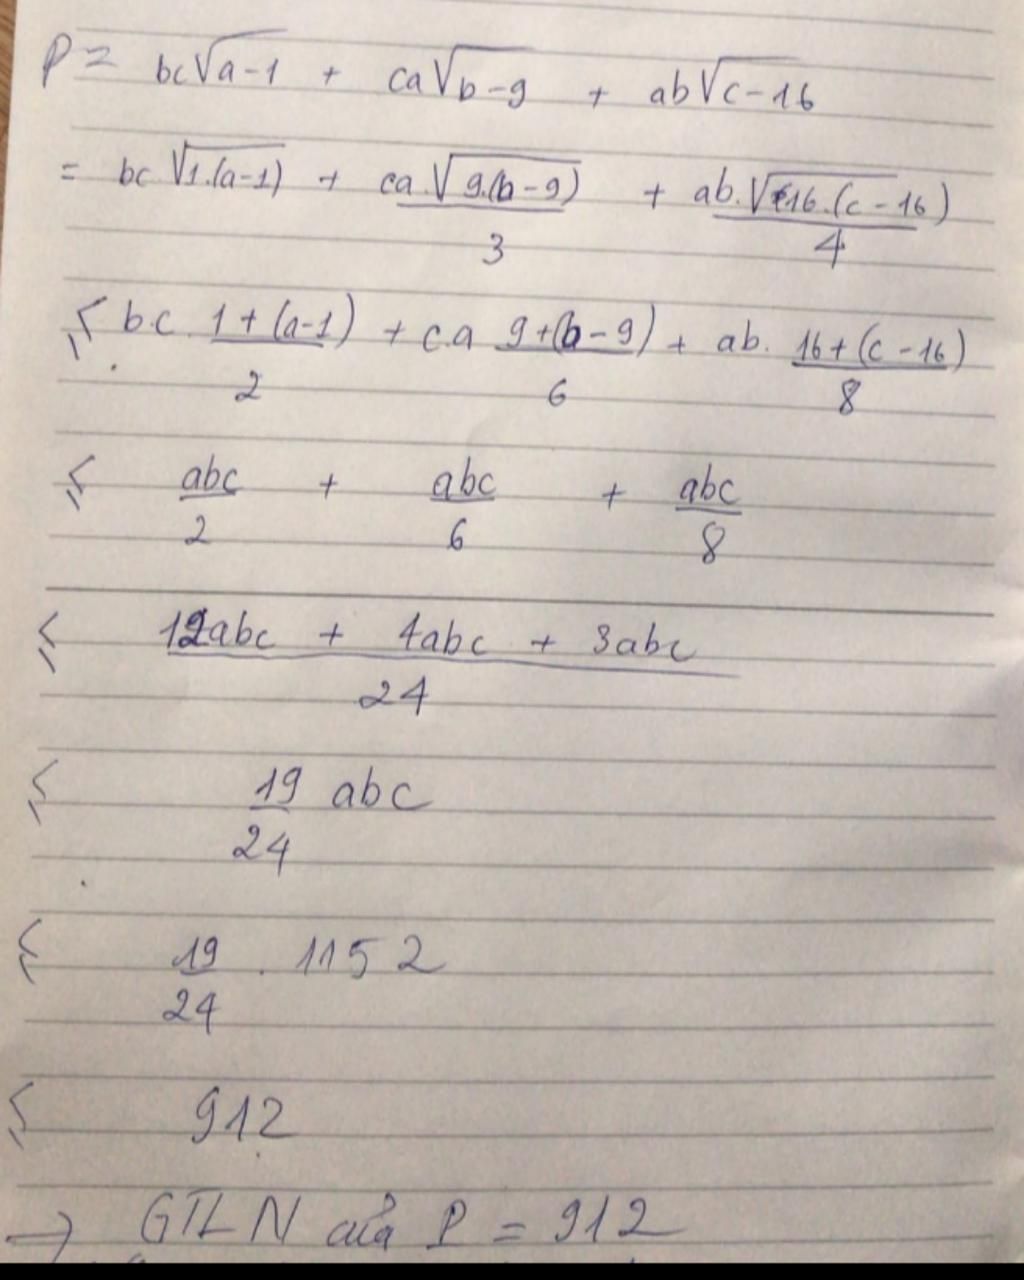 P = bc√a-1 + ca√b-9 + ab√c-16
= bc √1.(a-1) + ca.√9.(b-9) + ab.√16.(c-16)
3 4
≤ bc. 1+(a-1) + c.a 9+(b-9) + ab. 16+(c-16)
2 6 8
≤ abc + abc + abc
2 6 8
≤ 12abc + 4abc + 3abc
24
≤ 19 abc
24
≤ 19 . 1152
24
≤ 912
→ GTLN của P = 912